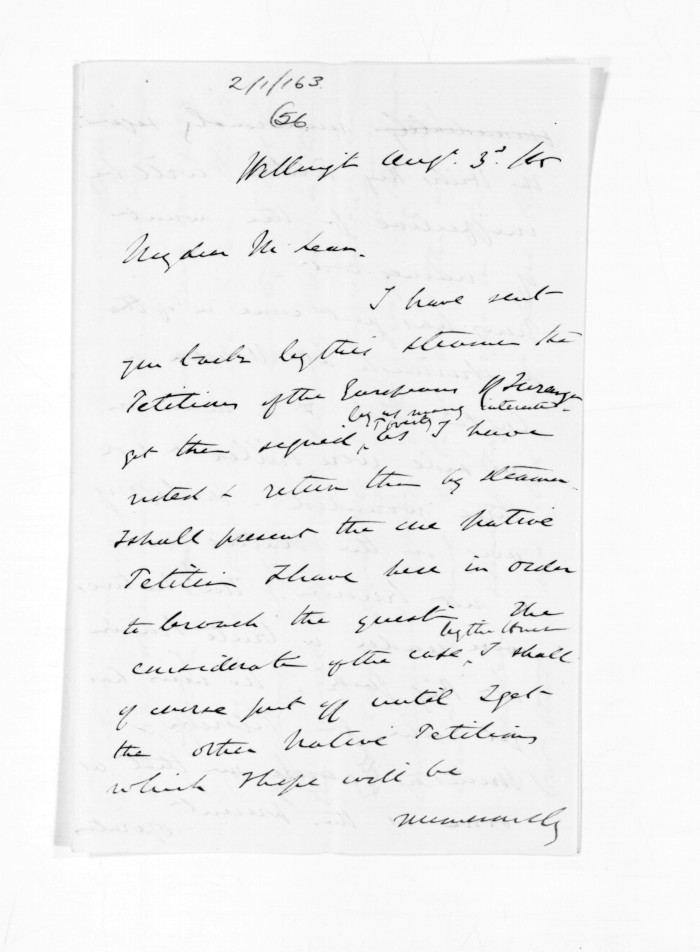 2/1/163
56
Wellingt Augt. 3d. /60
My dear McLean.
I have sent
you back by this steamer the
Petitions of the Europeans of Turanga
by as many interested
get them signed, as I have
noted & return them by steamer.
I shall present the one Native
Petition I have here in order
to broach the question. The
by the House
consideratn of the case, I shall
of course put off until I get
the other Native Petitions
which I hope will be
numerously